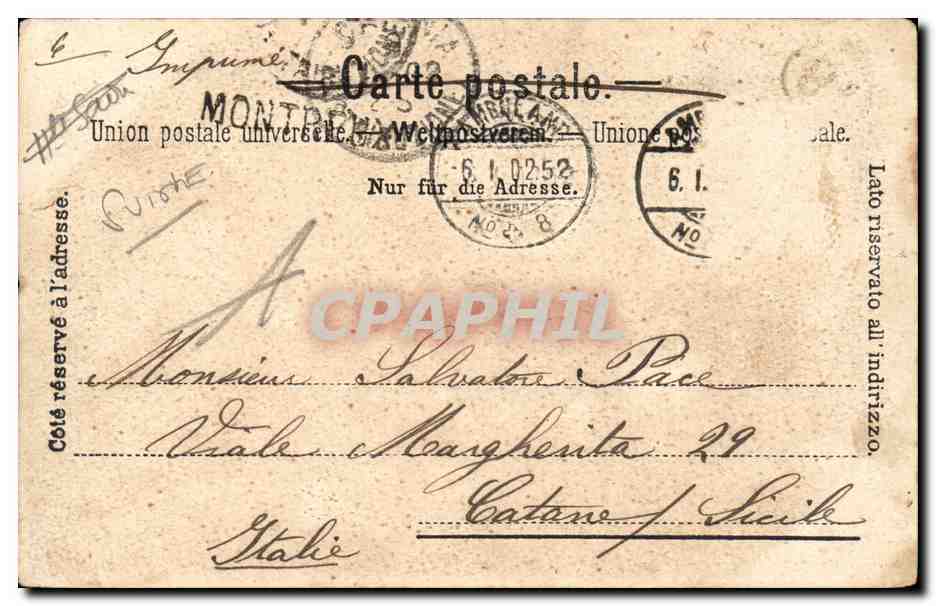 Imprimé
Carte postale.
MONTREUX
Union postale universelle. — Weltpostverein — Unione pos ale.
6. I. 02.5
6. I.
Nur für die Adresse.
No 8
No
Côté réservé à l'adresse.
Lato riservato all'indirizzo.
A
CPAPHIL
Monsieur Salvatore Pace
Viale Margherita 29
Catane / Sicile
Italie